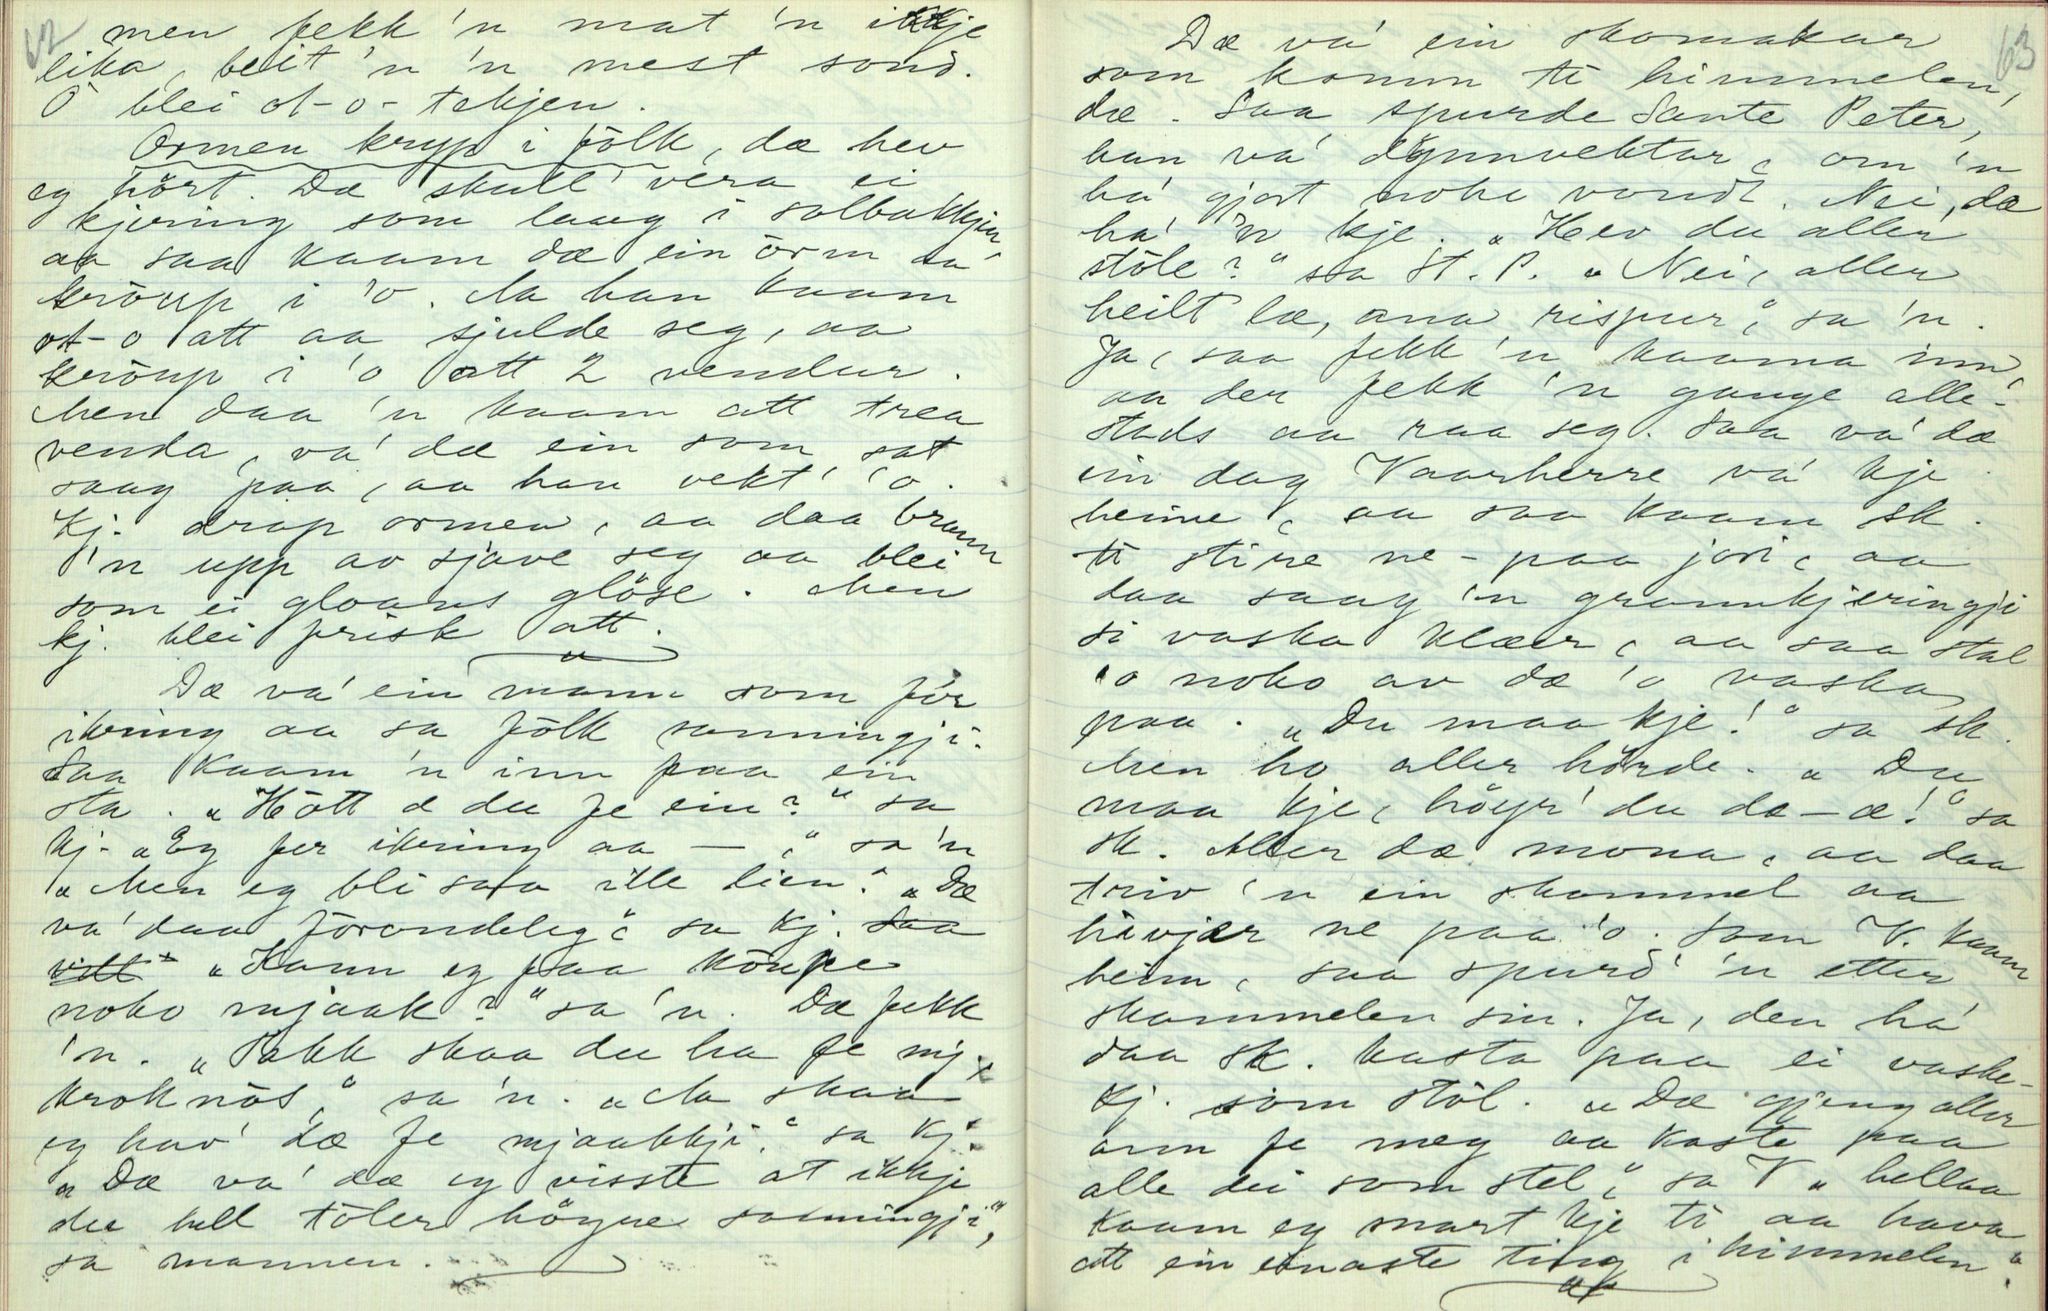 62
men fekk 'n mat 'n ikkje
lika, beit 'n 'n mest sond.
O blei ot-o-tekjen.
Ormen kryp i fōlk, dæ hev
eg hört. Dæ skull' vera ei
kjering som laag i solbakkjen
aa saa kaam dæ ein örm aa
krōup i 'o. Aa han kaam
ot-o att aa sjulde seg, aa
krōup i 'o att 2 vendur.
Men daa 'n kaam att trea
venda, va' dæ ein som sat
saag paa, aa han vekt' 'o.
Kj. drap ormen, aa daa brann
'n upp av sjave seg aa blei
som ei gloans glöse. Men
kj. blei frisk att.
Dæ va' ein mann som för
ikring aa sa fōlk sanningji.
Saa kaam 'n inn paa ein
sta. „Hōtt æ du fe ein?" sa
kj. „Eg fer ikring aa —," sa 'n
„Men eg bli saa ille lien." „Dæ
va' daa forondeleg," sa kj. Saa
vitt „Kann eg faa kōupe
noko mjaak?" sa 'n. Dæ fekk
'n. „Takk skaa du ha fe mj.
kroknōs," sa 'n. „Aa skaa
eg hav' dæ fe mjaakkji," sa kj.
„Dæ va' dæ eg visste at ikkje
du hell töler höyre sanningji",
sa mannen.
63
Dæ va' ein skomakar
som komm te himmelen,
dæ. Saa spurde Sante Peter,
han va' dynnvektar, om 'n
ha' gjort noko vondt. Nei, dæ
ha' 'n kje. „Hev du aller
stōle?" sa St. P. „Nei, aller
heilt læ, ana rispur," sa 'n.
Ja, saa fekk 'n kaama inn,
aa der fekk 'n gange alle-
stads aa raa seg. Saa va' dæ
ein dag Vaarherre va' kje
heime, aa saa kaam sk.
te stire ne-paa jori, aa
daa saag 'n grannkjeringji
si vaska klær, aa saa stal
'o noko av dæ 'o vaska
paa. „Du maa kje!" sa sk.
Men ho aller hörde. „Du
maa kje, höyr' du dæ-æ!" sa
sk. Aller dæ mona, aa daa
treiv 'n ein skammel aa
hivjer ne paa 'o. Som V. kaam
heim, saa spurd' 'n etter
skammelen sin. Ja, den ha'
daa sk. kasta paa ei vaske-
kj. som stōl. „Dæ gjeng aller
ann fe meg aa kaste paa
alle dei som stel," sa V „hellaa
kaam eg snart kje te aa hava
att ein einaste ting i himmelen."